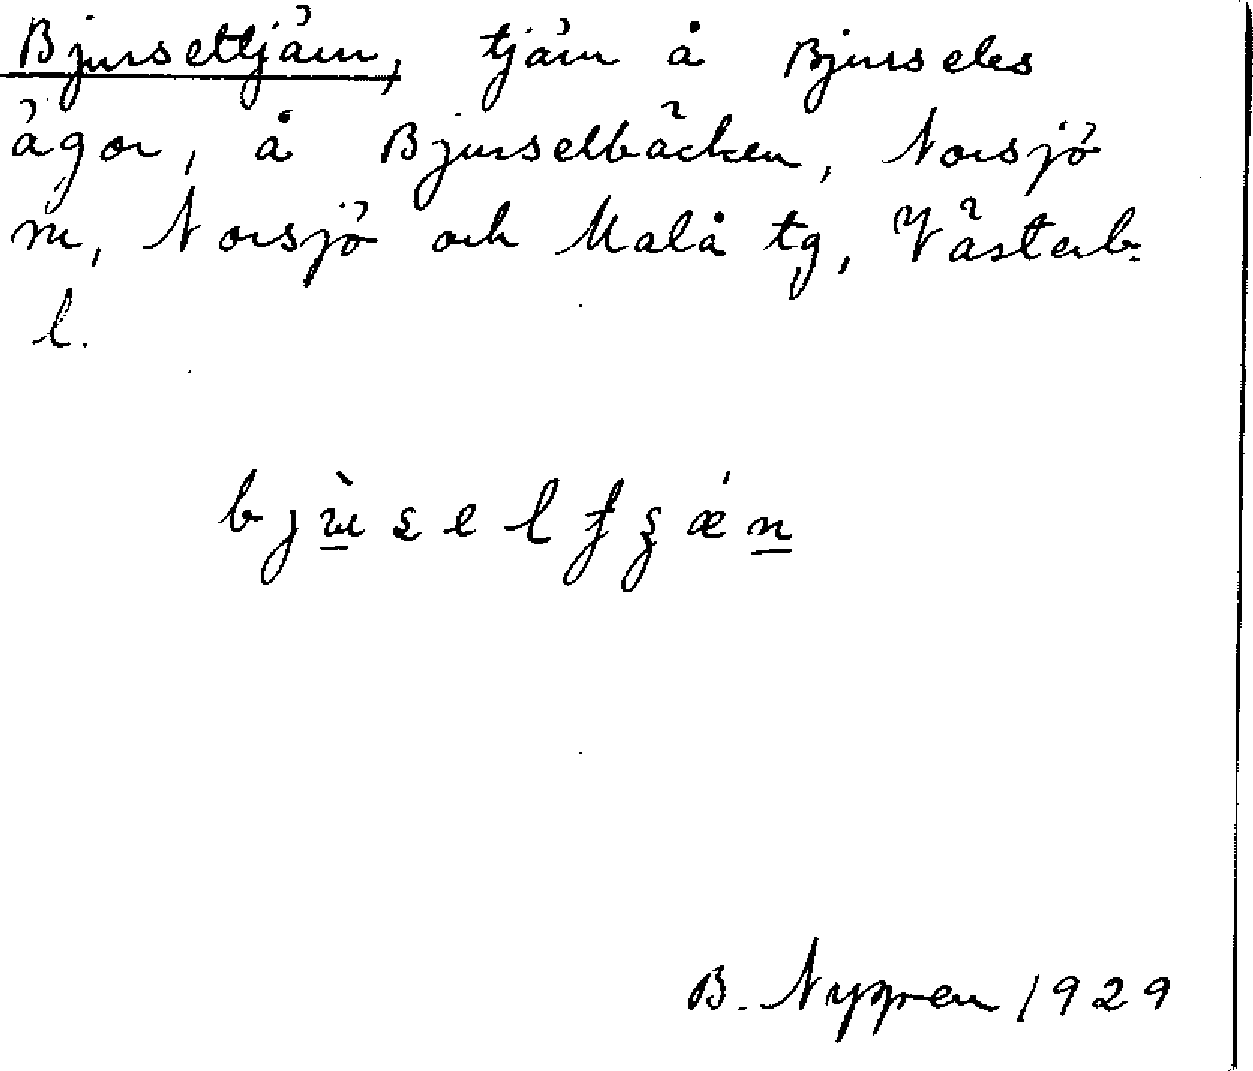 Bjurseltjärn, tjärn å Bjurseles
ägor, å Bjurselbäcken, Norsjö
sn, Norsjö och Malå tg, Västerb.
l.
B. Nygren 1929